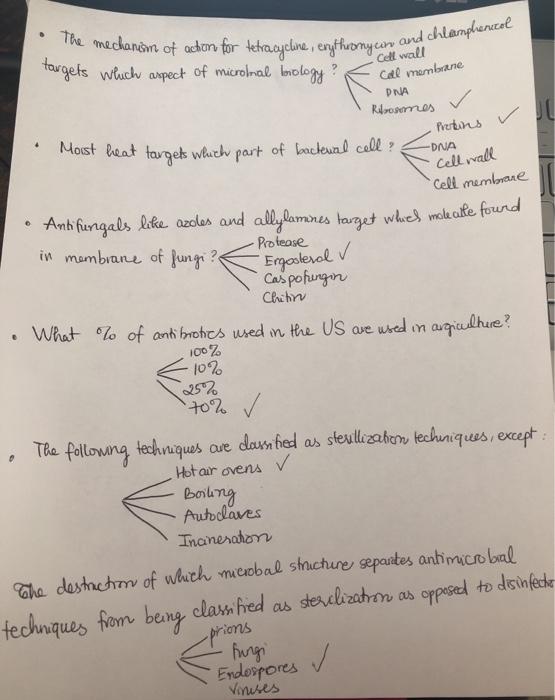 • The mechanism of action for tetracycline, erythromycin and chlamphenicol
targets which aspect of microbial biology?
Cell wall
Cell membrane
DNA
Ribosomes ✓
• Moist heat targets which part of bacterial cell?
Proteins ✓
DNA
Cell wall
Cell membrane
• Antifungals like azoles and allylamines target which molecule found
in membrane of fungi?
Protease
Ergosterol ✓
Caspofungin
Chitin
• What % of antibiotics used in the US are used in argiculture?
100%
10%
25%
70% ✓
• The following techniques are classified as sterillization techniques, except:
Hot air ovens ✓
Boiling
Autoclaves
Incineration
The destruction of which microbal structure separates antimicrobial
techniques from being classified as sterilization as opposed to disinfecto
prions
fungi
Endospores ✓
Viruses